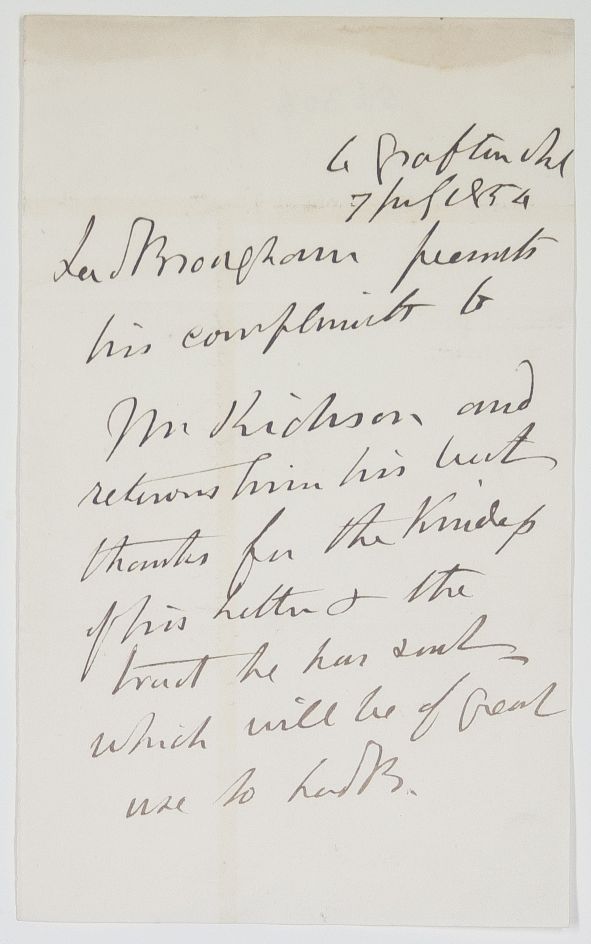 4 Grafton St
7 July 1854
Lord Brougham presents
his compliments to
Mr Richson and
returns him his best
thanks for the kindness
of his letter & the
tract he has sent
which will be of great
use to Lord B.